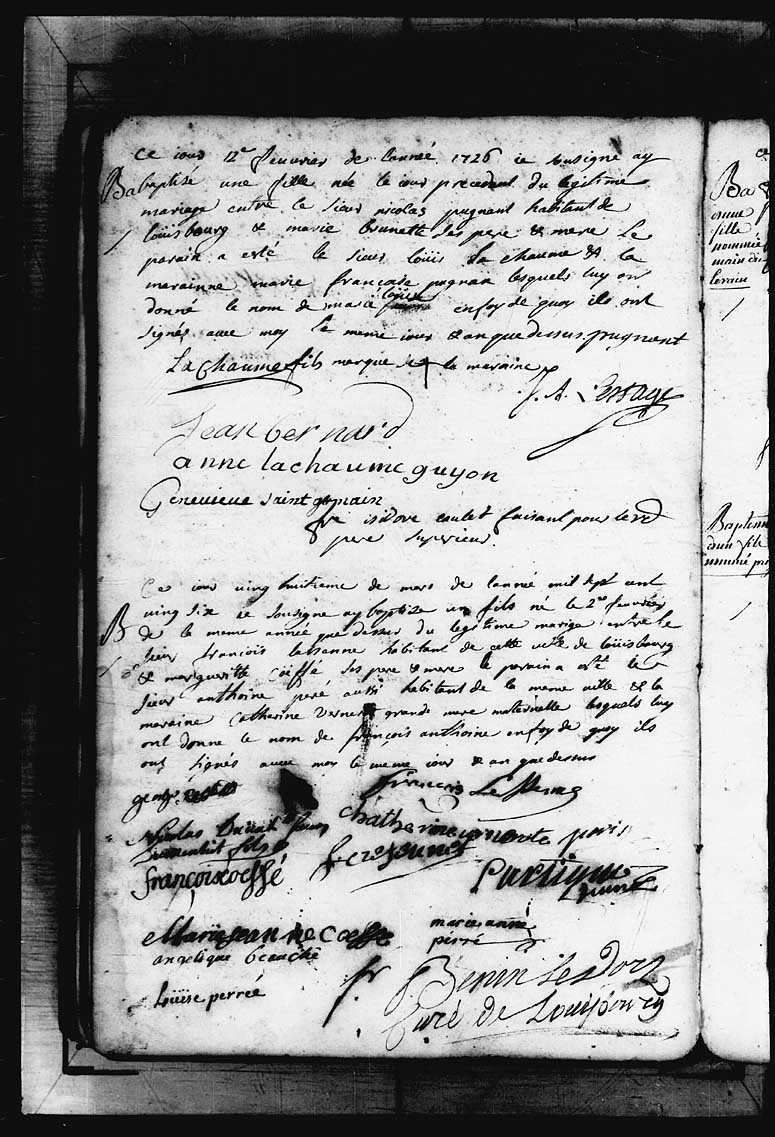 Ce iour 12e feuvrier de lanneé 1726 ie sousigne ay
Ba baptisé une fille née le iour precedent du legitime
mariage entre le sieur nicolas pugnant habitant de
loüisbourg & marie brunette ses pere & mere le
parain a esté le sieur loüis la chaume & la
marainne marie francoise pugnan lesquels luy on
donné le nom de marie loüise en foy de quoy ils ont
signés avec moy le meme iour & an que dessus. pugnant
La Chaume fils marque de + la maraine
J. A. Lessage
Jean bernard
anne lachaume guyon
Genevieve saint germain
fre isidore caulet faisant pour le rd
pere superieur
Ce iour ving huitieme de mars de lannée mil sept cent
B ving six ie sousigne ay baptize un fils né le 2me feuvrier
de la meme année que dessus du legitime mariage entre le
sieur francois lassonne habitant de cette ville de loüisbourg
& margueritte coeffé ses pere & mere le parain a esté le
sieur anthoine peré aussi habitant de la meme ville & la
maraine Catherine grande mere maternelle lesquels luy
ont donne le nom de francois anthoine en foy de quoy ils
ont signés avec moy le meme iour & an que dessus
francois
Nicolas
Chatherine paris
fils
françoix coessé
Marie jeanne Coesse
marie anne
perré
angelique
Loüise perrée
fr Benin le dorz
Curé de Louisbourg
Ba
dune
fille
nommée
Bapteme
dun fils
nommé